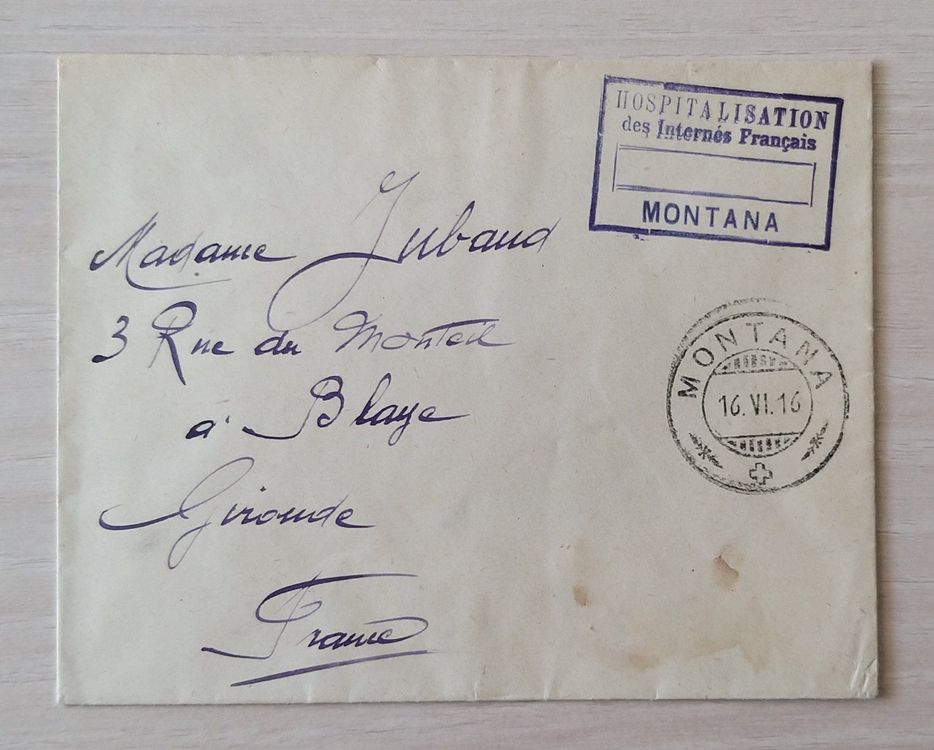 HOSPITALISATION
des Internés Français
MONTANA
Madame Jubaud
3 Rue du Monteil
à Blaye
Gironde
France
MONTANA
16.VI.16